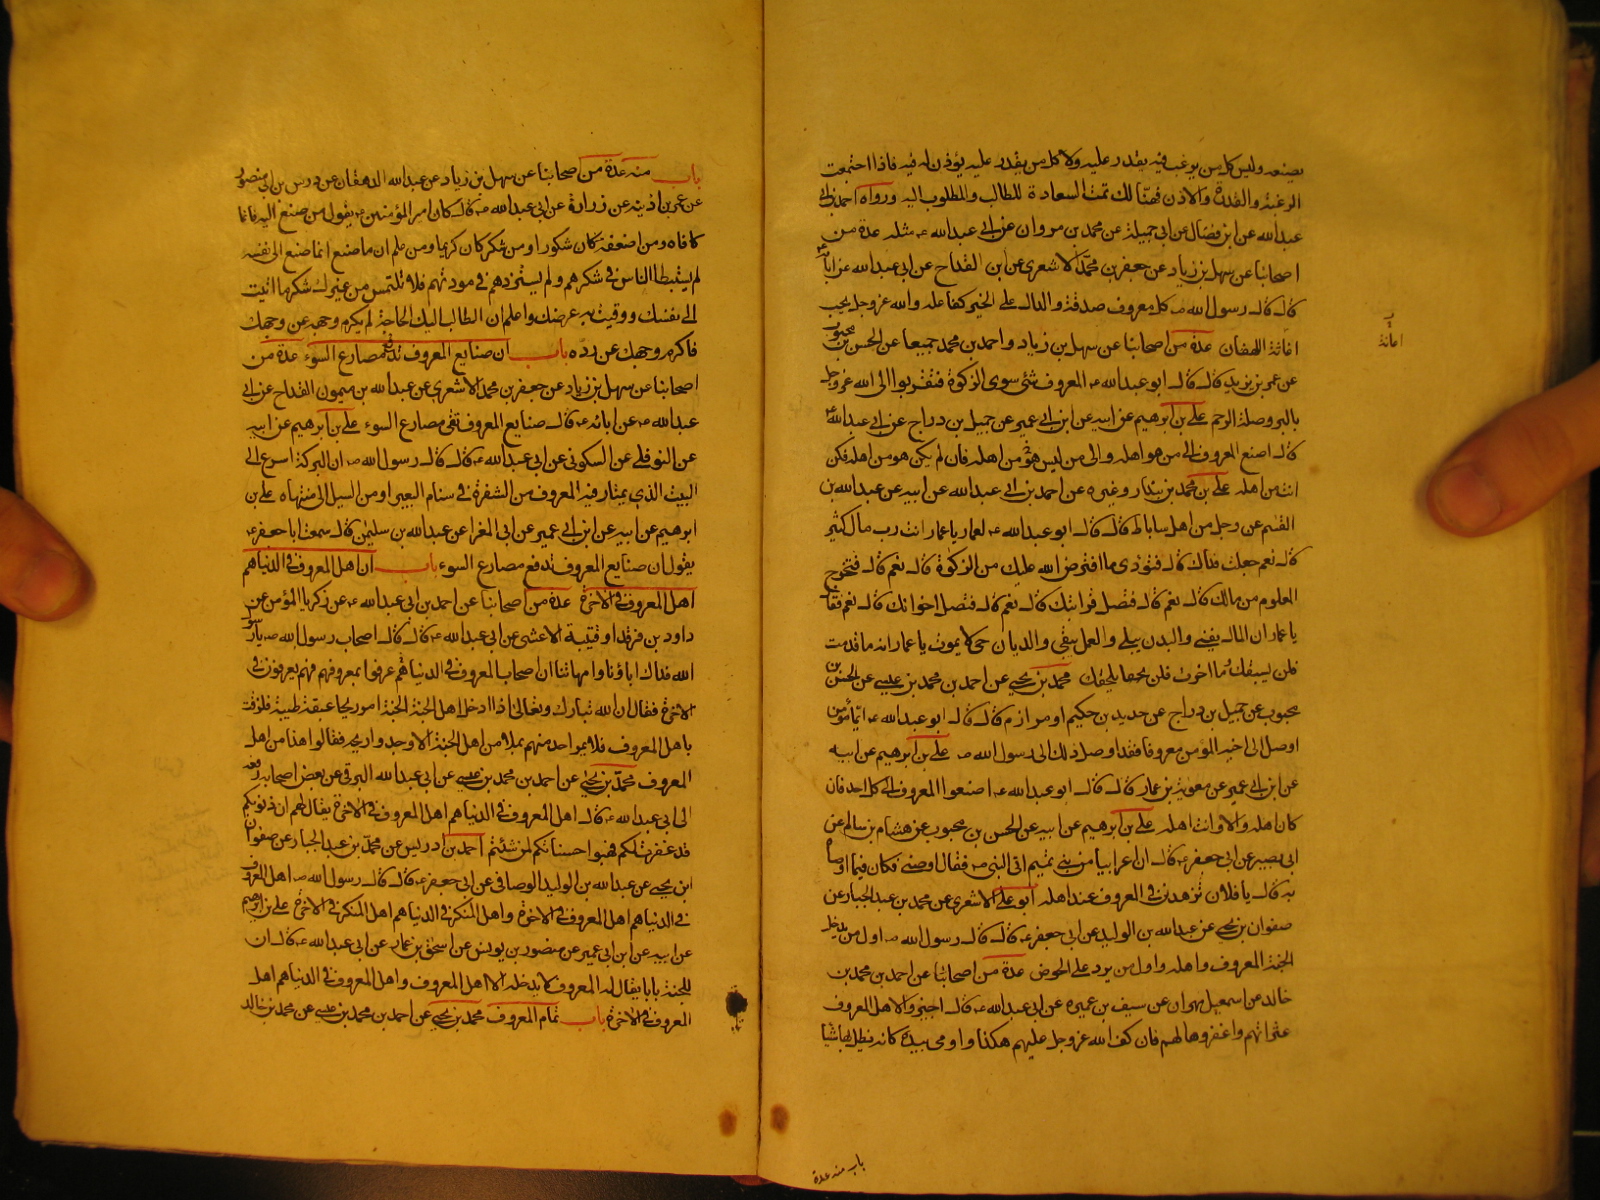 يصنعه وليس كل من يرغب فيه يقدر عليه ولا كل من يقدر عليه يؤذن له فيه فاذا اجتمعت
الرغبة والقدرة والاذن فهنالك تمت السعادة للطالب والمطلوب اليه ورواه احمد بن ابي
عبدالله عن ابن فضال عن ابي جميلة عن محمد بن مروان عن ابي عبدالله ع مثله عدة من
اصحابنا عن سهل بن زياد عن جعفر بن محمد الاشعري عن ابن القداح عن ابي عبدالله عن ابائه ع
قال قال رسول الله ص كل معروف صدقة والدال على الخير كفاعله والله عز وجل يحب
اغاثة اللهفان عدة من اصحابنا عن سهل بن زياد واحمد بن محمد جميعا عن الحسن بن محبوب
عن عمر بن يزيد قال قال ابو عبدالله ع المعروف شئ سوى الزكوة فتقربوا الى الله عز وجل
بالبر وصلة الرحم علي بن ابرهيم عن ابيه عن ابن ابي عمير عن جميل بن دراج عن ابي عبدالله ع
قال اصنع المعروف الى من هو اهله والى من ليس هو من اهله فان لم يكن هو من اهله فكن
انت من اهله علي بن محمد بن بندار وغيره عن احمد بن ابي عبدالله عن ابيه عن عبدالله بن
القسم عن رجل من اهل ساباط قال قال ابو عبدالله ع لعمار يا عمار انت رب مال كثير
قال نعم جعلت فداك قال فتؤدي ما افترض الله عليك من الزكوة قال نعم قال فتخرج
المعلوم من مالك قال نعم قال فتصل قرابتك قال نعم قال فتصل اخوانك قال نعم فقال
يا عمار ان المال يفنى والبدن يبلى والعمل يبقى والديان حي لا يموت يا عمار انه ما قدمت
فلن يسبقك وما اخرت فلن يلحقك محمد بن يحيى عن احمد بن محمد بن عيسى عن الحسن بن
محبوب عن جميل بن دراج عن حديد بن حكيم او مرازم قال قال ابو عبدالله ع ايما مؤمن
اوصل الى اخيه المؤمن معروفا فقد اوصل ذلك الى رسول الله ص علي بن ابرهيم عن ابيه
عن ابن ابي عمير عن معوية بن عمار قال قال ابو عبدالله ع اصنعوا المعروف الى كل احد فان
كان اهله والا وانت اهله علي بن ابرهيم عن ابيه عن الحسن بن محبوب عن هشام بن سالم عن
ابي بصير عن ابي جعفر ع قال ان اعرابيا من بني تميم اتى النبي ص فقال اوصني فكان فيما اوصاه
به قال يا فلان لا تزهدن في المعروف عند اهله ابو علي الاشعري عن محمد بن عبد الجبار عن
صفوان بن يحيى عن عبدالله بن الوليد عن ابي جعفر ع قال قال رسول الله ص اول من يدخل
الجنة المعروف واهله واول من يرد على الحوض عدة من اصحابنا عن احمد بن محمد بن
خالد عن اسمعيل بن مهران عن سيف بن عميرة عن ابي عبدالله ع قال اجيزوا لاهل المعروف
عثراتهم واغفروها لهم فان كف الله عز وجل عليهم هكذا واومى بيده كانه يظل بها شيئا
اغاثة
باب منه عدة
باب منه عدة من اصحابنا عن سهل بن زياد عن عبدالله الدهقان عن درست بن ابي منصور
عن عمر بن اذينة عن زرارة عن ابي عبدالله ع قال كان امير المؤمنين ع يقول من صنع اليه فانما
كافاه ومن اضعفه كان شكورا ومن شكر كان كريما ومن علم ان ما صنع انما صنع الى نفسه
لم يستبطا الناس في شكرهم ولم يستزدهم في مودتهم فلا تلتمس من غيرك شكر ما اتيت
الى نفسك ووقيت به عرضك واعلم ان الطالب اليك الحاجة لم يكرم وجهه عن وجهك
فاكرم وجهك عن رده باب ان صنايع المعروف تدفع مصارع السوء عدة من
اصحابنا عن سهل بن زياد عن جعفر بن محمد الاشعري عن عبدالله بن ميمون القداح عن ابي
عبدالله ع عن ابائه ع قال صنايع المعروف تقي مصارع السوء علي بن ابرهيم عن ابيه
عن النوفلي عن السكوني عن ابي عبدالله ع قال قال رسول الله ص ان البركة اسرع الى
البيت الذي يمتار فيه المعروف من الشفرة في سنام البعير او من السيل الى منتهاه علي بن
ابرهيم عن ابيه عن ابن ابي عمير عن ابي المغرا عن عبدالله بن سليمن قال سمعت ابا جعفر ع
يقول ان صنايع المعروف تدفع مصارع السوء باب ان اهل المعروف في الدنيا هم
اهل المعروف في الاخرة عدة من اصحابنا عن احمد بن ابي عبدالله ع عن زكريا المؤمن عن
داود بن فرقد او قتيبة الاعشى عن ابي عبدالله ع قال قال اصحاب رسول الله ص يا رسول
الله فداك اباؤنا وامهاتنا ان اصحاب المعروف في الدنيا هم عرفوا بمعروفهم فبم يعرفون في
الاخرة فقال ان الله تبارك وتعالى اذا ادخل اهل الجنة الجنة امر ريحا عبقة طيبة فلزقت
باهل المعروف فلا يمر احد منهم بملا من اهل الجنة الا وجدوا ريحه فقالوا هذا من اهل
المعروف محمد بن يحيى عن احمد بن محمد بن عيسى عن ابي عبدالله البرقي عن بعض اصحابه رفعه
الى ابي عبدالله ع قال اهل المعروف في الدنيا هم اهل المعروف في الاخرة يقال لهم ان ذنوبكم
قد غفرت لكم فهبوا حسناتكم لمن شئتم احمد بن ادريس عن محمد بن عبد الجبار عن صفوان
ابن يحيى عن عبدالله بن الوليد الوصافي عن ابي جعفر ع قال قال رسول الله ص اهل المعروف
في الدنيا هم اهل المعروف في الاخرة واهل المنكر في الدنيا هم اهل المنكر في الاخرة علي بن ابرهيم
عن ابيه عن ابن ابي عمير عن منصور بن يونس عن اسحق بن عمار عن ابي عبدالله ع قال ان
للجنة بابا يقال له المعروف لا يدخله الا اهل المعروف واهل المعروف في الدنيا هم اهل
المعروف في الاخرة باب تمام المعروف محمد بن يحيى عن احمد بن محمد بن عيسى عن محمد بن خالد